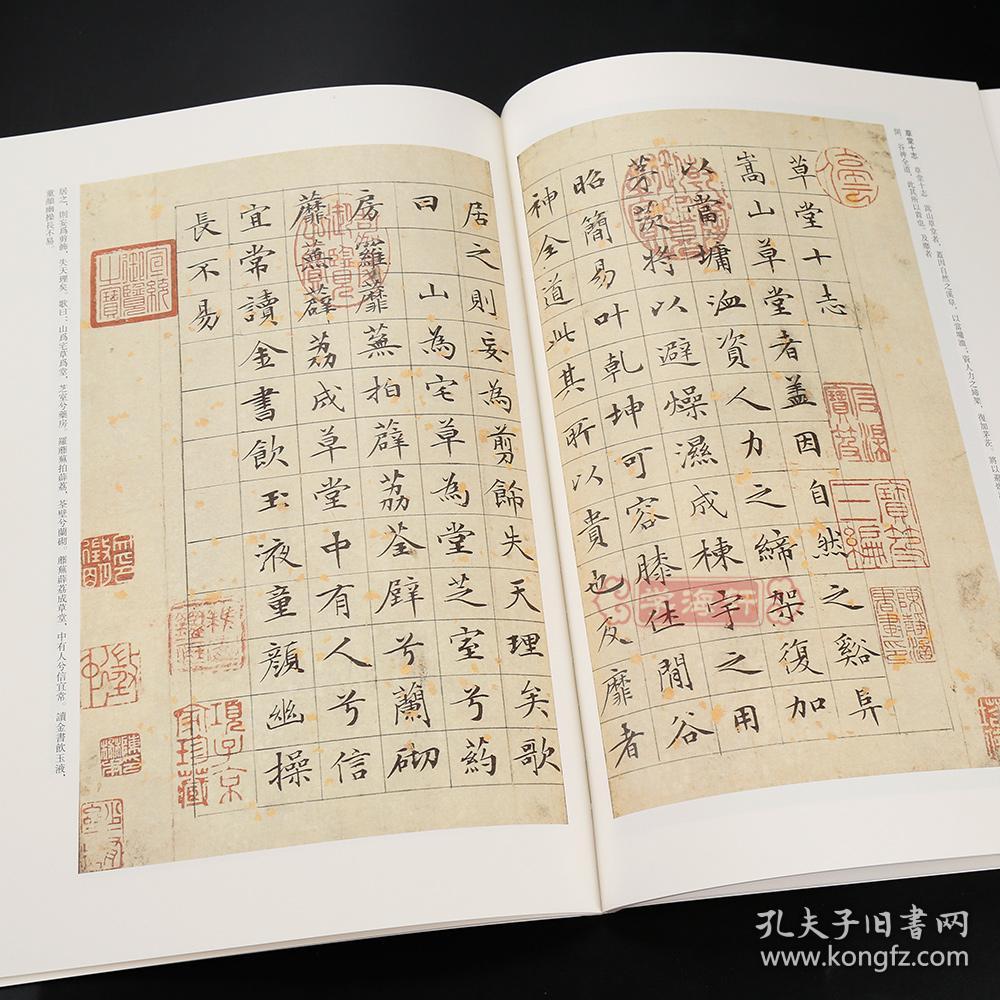 草堂十志 草堂十志 嵩山草堂者，蓋因自然之溪阜，以當墉洫；資人力之締架，復加茅茨，將以避
間，谷神全道，此其所以貴也。及靡者
草堂十志
嵩山草堂者盖因自然之谿阜
以當墉洫資人力之締架復加
茅茨將以避燥濕成棟宇之用
昭簡易叶乾坤可容膝休閒谷
神全道此其所以貴也及靡者
石渠寶笈
寶笈三編
居之則妄為剪飾失天理矣歌
曰 山為宅草為堂芝室兮葯
房蘿蘼蕪拍薜荔荃壁兮蘭砌
蘼蕪薜荔成草堂中有人兮信
宜常讀金書飲玉液童顏幽操
長不易
宣統御覽之寶
項子京家珍藏
居之，則妄爲剪飾，失天理矣。歌曰：山爲宅草爲堂，芝室兮藥房。羅蘼蕪拍薜荔，荃壁兮蘭砌。蘼蕪薜荔成草堂，中有人兮信宜常。讀金書飲玉液，
童顏幽操長不易。
孔夫子旧书网
www.kongfz.com